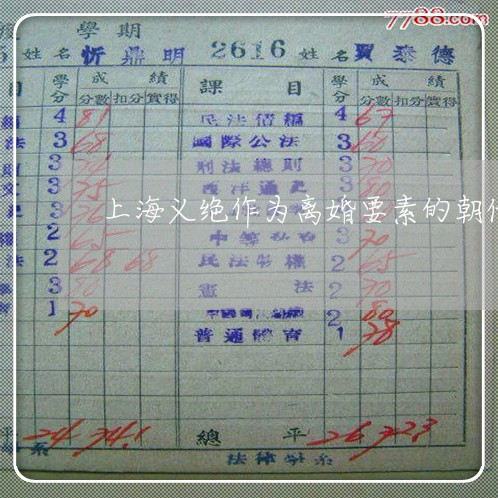 7788.com
學期
姓名 忻鼎明 2616 姓名 賈泰德
目 學分 成績 課目 學分 成績
分數 扣分 實得 分數 扣分 實得
4 81 民法債編 4 67
法 3 68 國際公法 3 60
3 刑法總則 3 70
文 3 75 西洋通史 3 80
上海义绝作为离婚要素的朝代
權 2 65 3 70
法 2 68 68 民法物權 2 65
3 80 憲法 2 70
育 1 70 2 80
普通體育 1 78
平 24 74.1 總平 26 72.3
系 法律學系